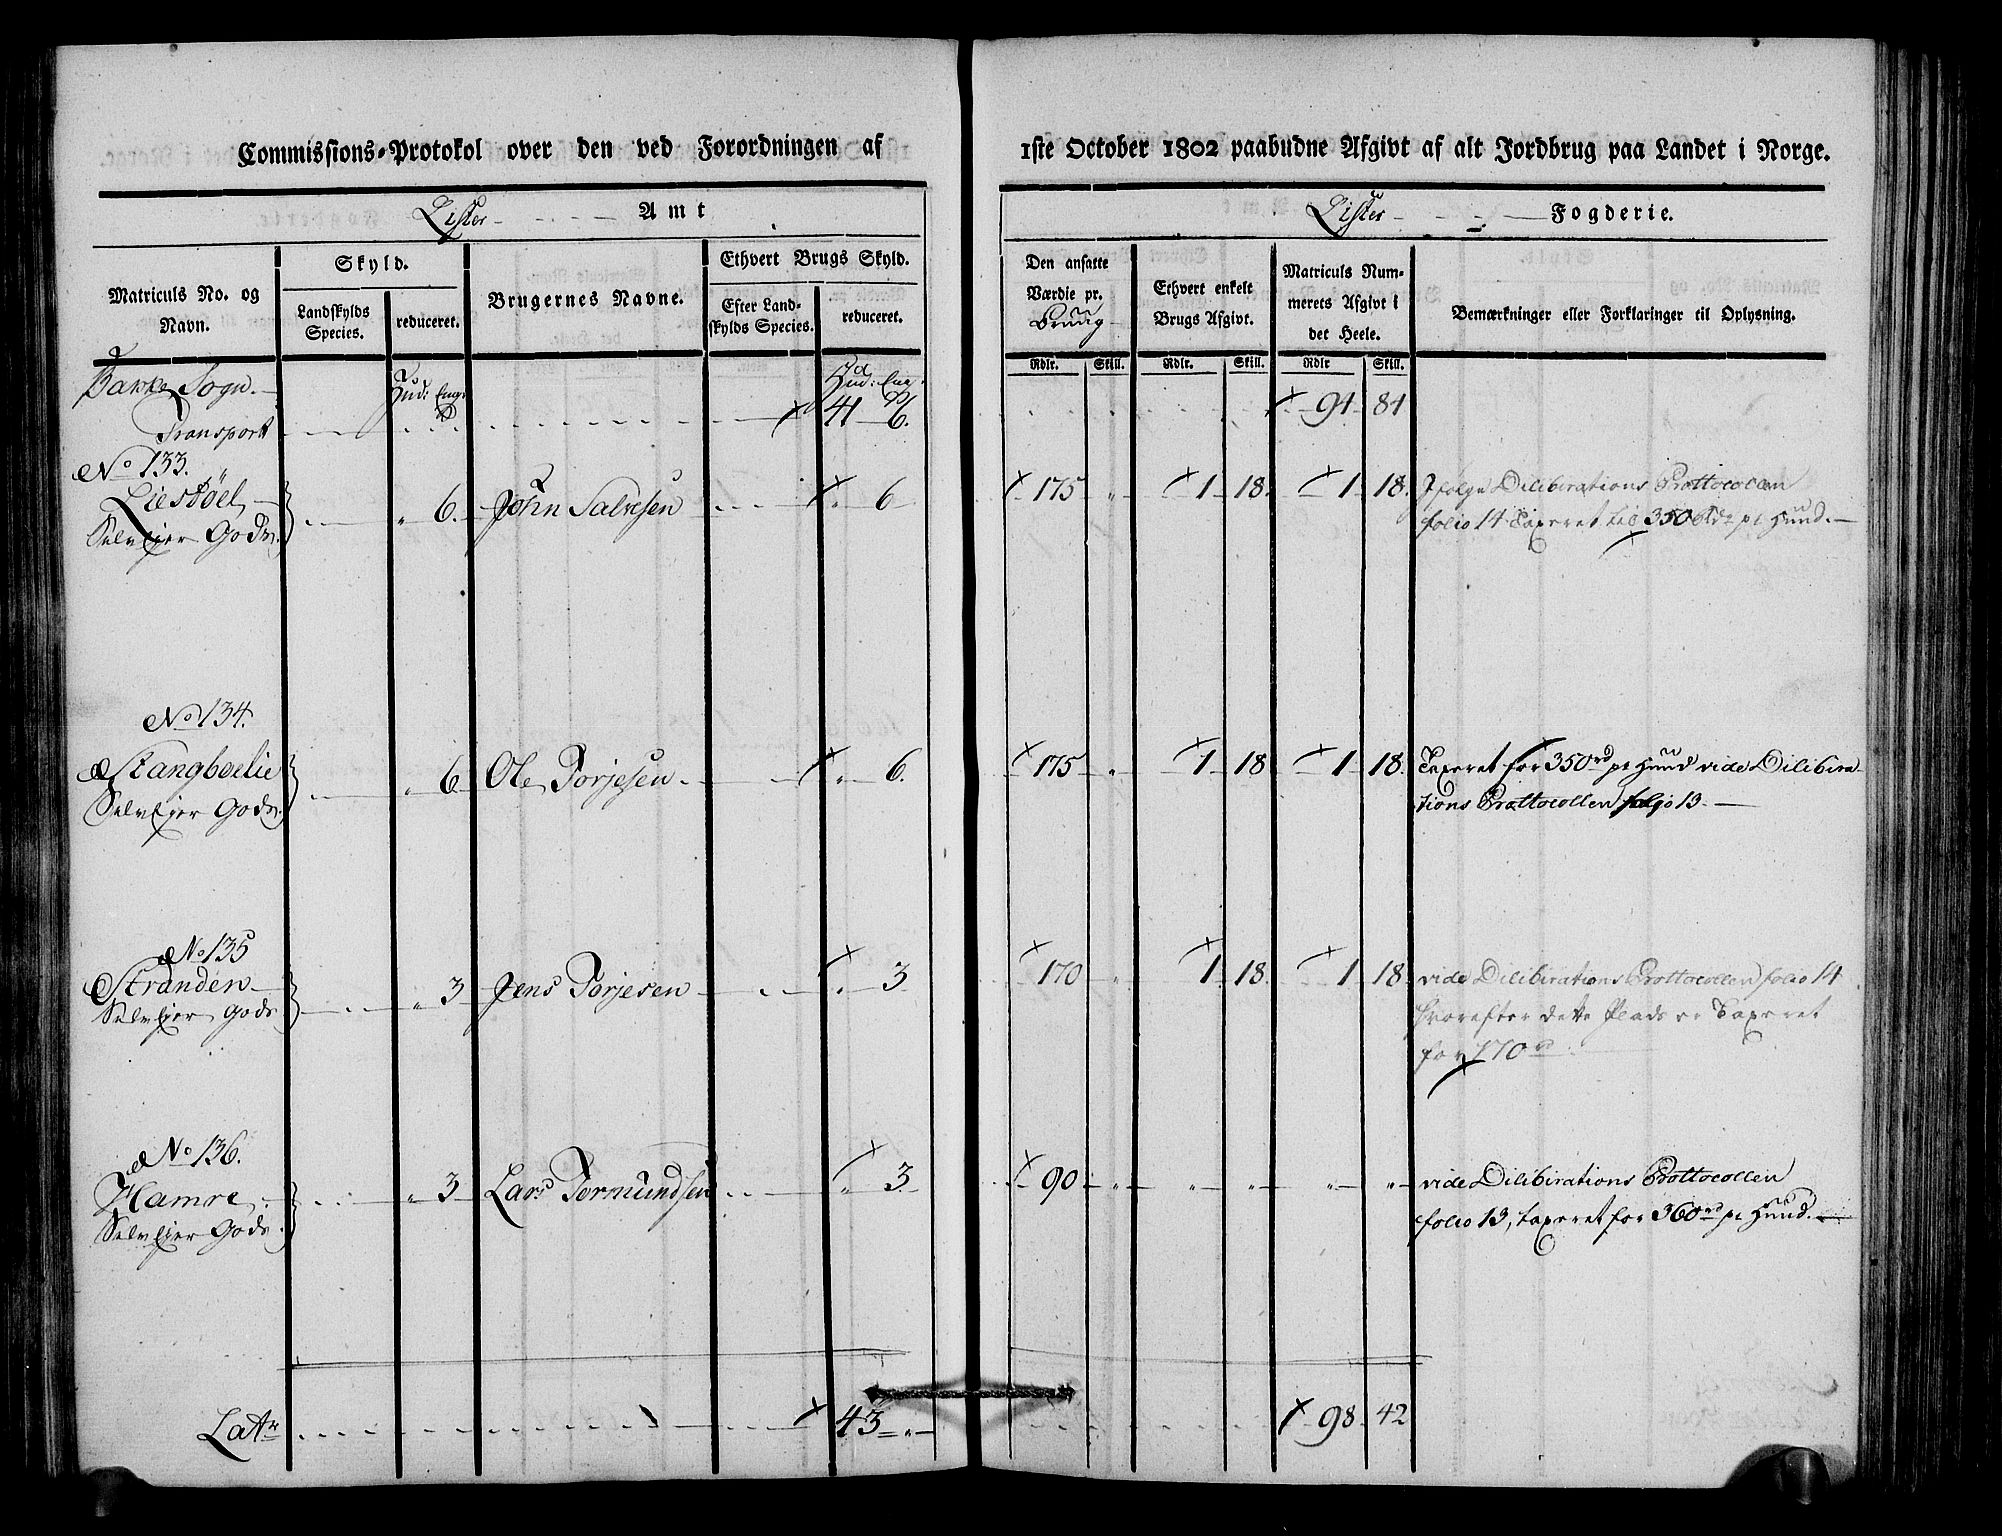 Commissions-Protokol over den ved Forordningen af
Lister Amt
Matriculs No. og Navn.
Skyld.
Landskylds Species.
reduceret.
Brugernes Navne.
Ethvert Brugs Skyld.
Efter Landskylds Species.
reduceret.
Bakke Sogn.
Hud: Eng:
Hud: Eng:
Transport 41 6.
No 133.
Liestöel 6. John Salvesen 6
Selveier Gods.
No 134.
Stangboelie 6 Ole Torjesen 6.
Selveier Gods.
No 135
Stranden 3 Jens Torjesen 3
Selveier Gods
No 136.
Hamre 3 Lars Tormundsen 3.
Selveier Gods.
Latr 43 "
1ste October 1802 paabudne Afgivt af alt Jordbrug paa Landet i Norge.
Lister Fogderie.
Den ansatte Værdie pr. Brug
Ethvert enkelt Brugs Afgivt.
Matriculs Nummerets Afgivt i det Heele.
Bemærkninger eller Forklaringer til Oplysning.
Rdlr. Skill. Rdlr. Skill. Rdlr Skill.
91 81
175 " 1 18. 1 18. Ifølge Dilibirations Prottocollen
folio 14 Taxeret til 350 rd pr Hud.
175 " 1 18 1 18. Taxeret for 350 rd pr Hud vide Dilibira
tions Prottocollen folio 13.
170 " 1 18. 1 18. vide Dilibirations Prottocollen folio 14
hvorefter dette Plads er Taxeret
for 170 rd
90 " " " " " vide Dilibirations Prottocollen
folio 13, taxeret for 360 rd pr Hud.
98 42